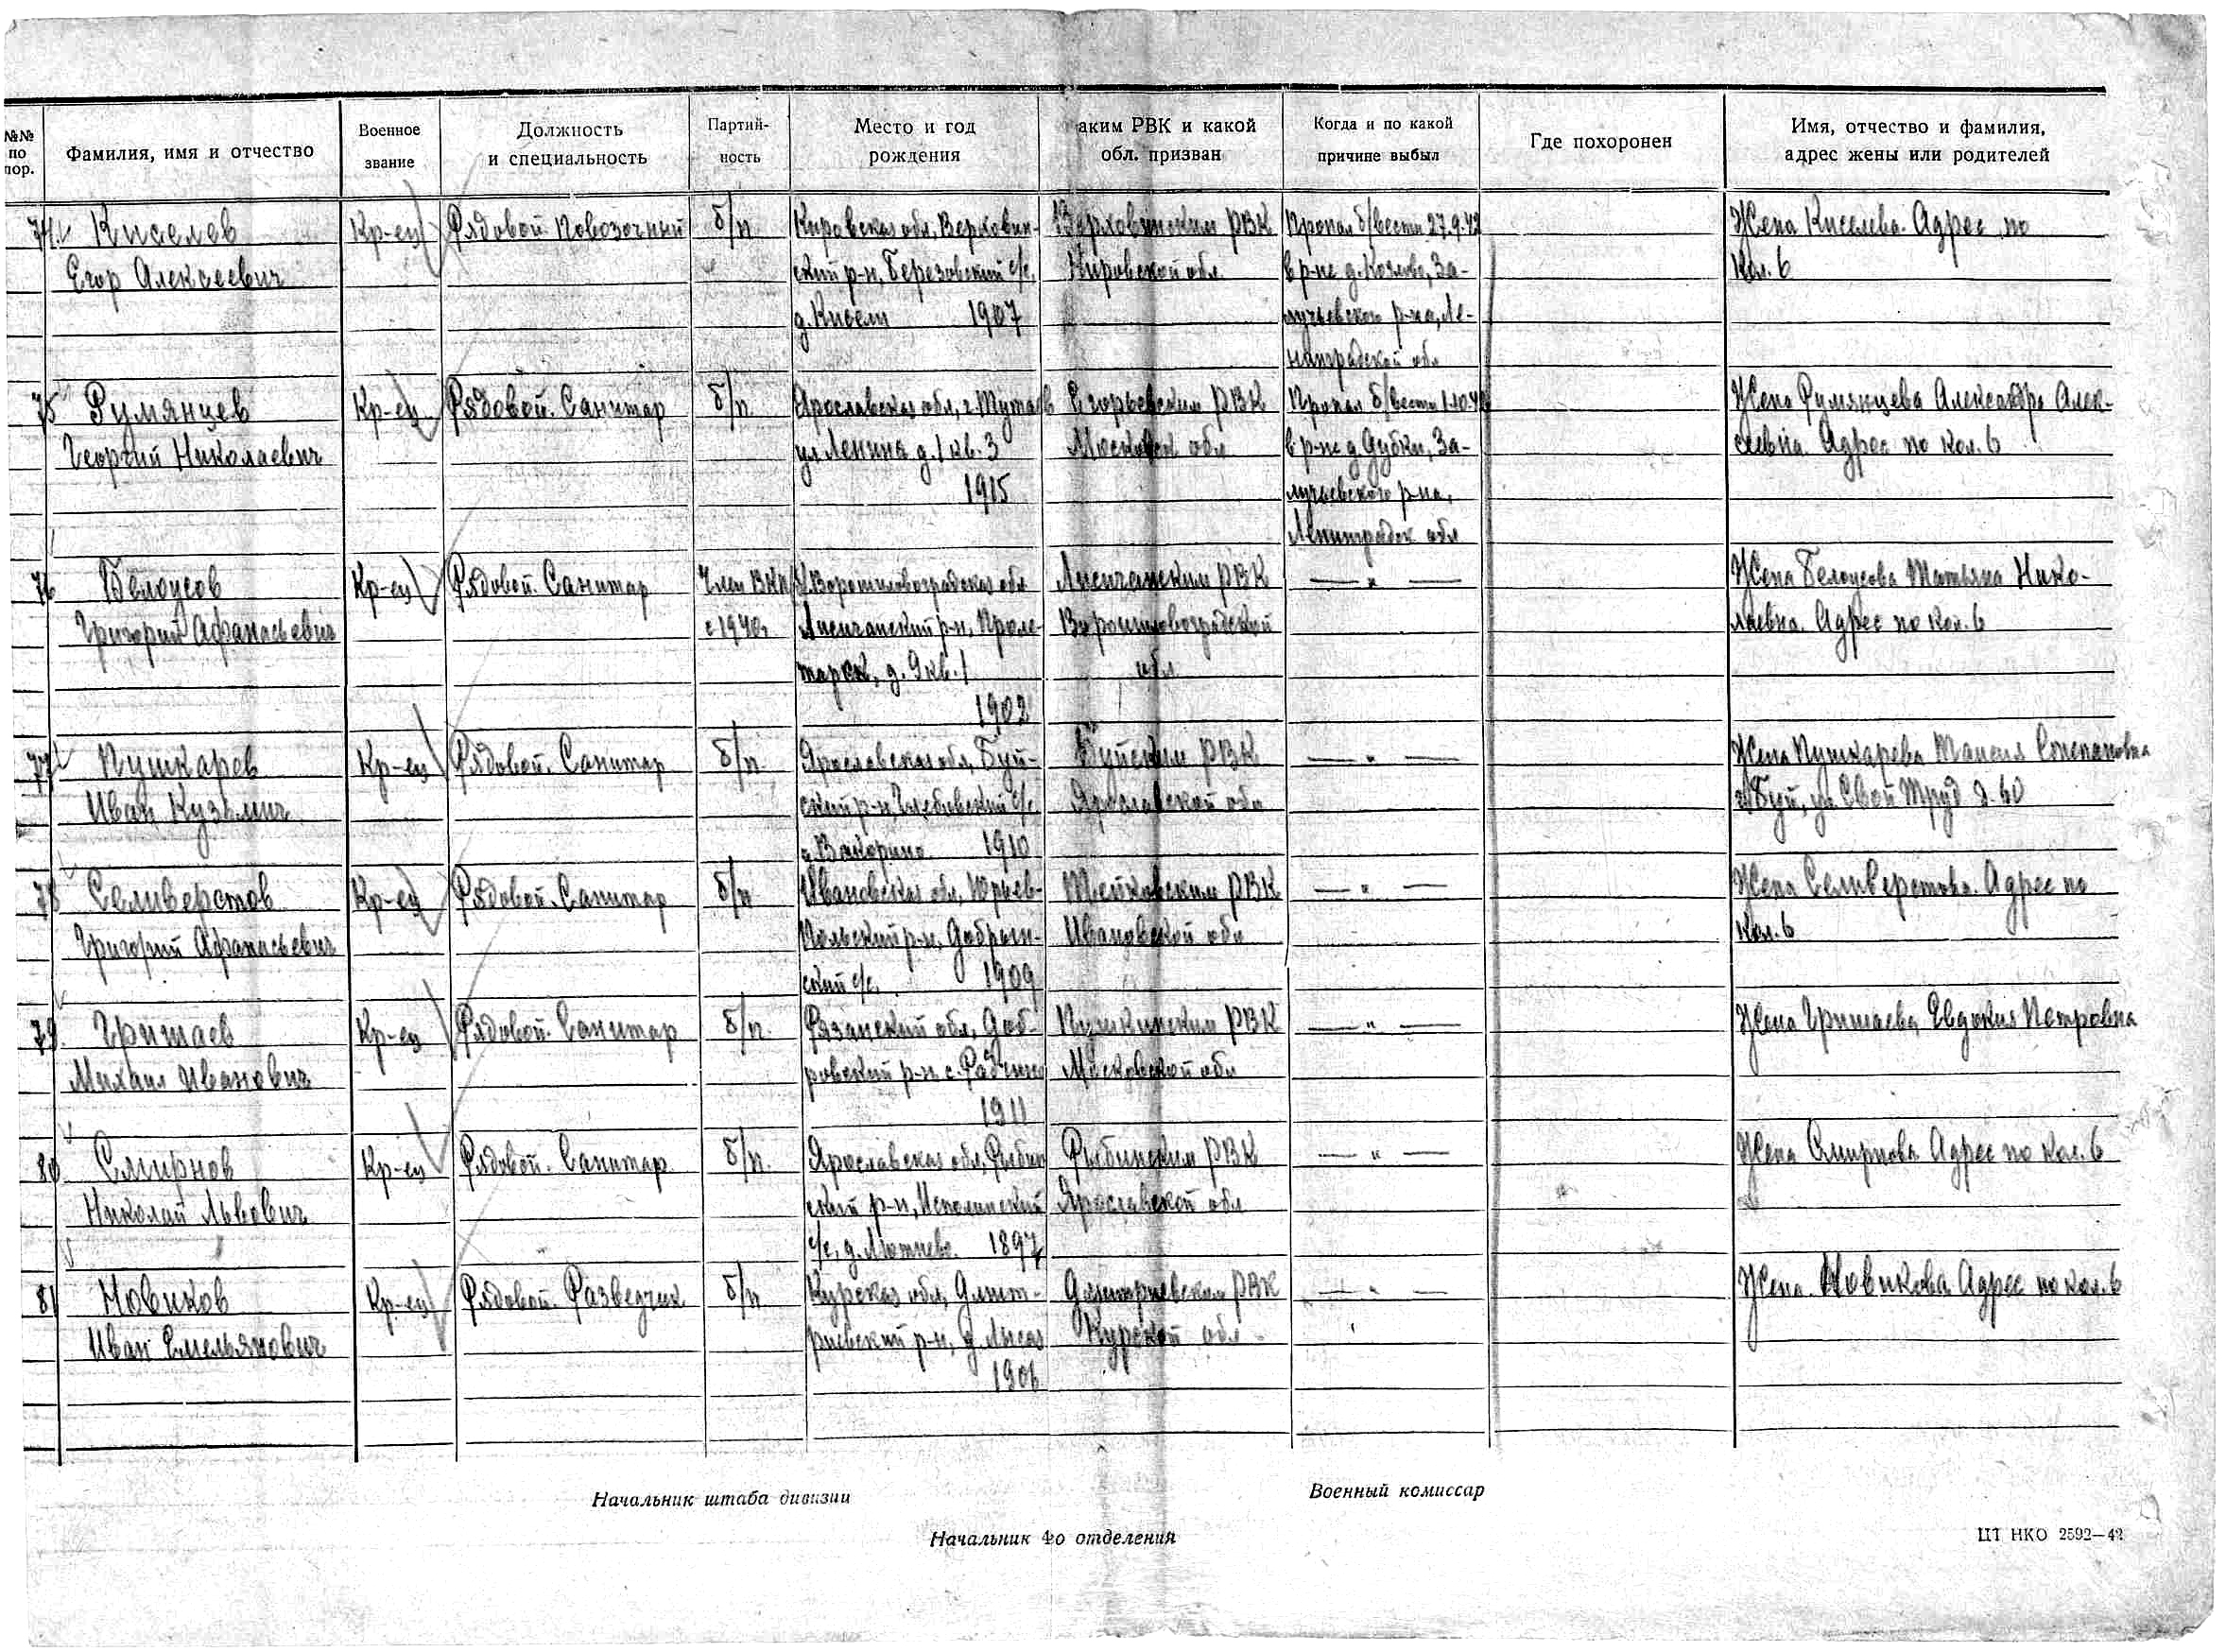 №№ по пор.
Фамилия, имя и отчество
Военное звание
Должность и специальность
Партий-ность
Место и год рождения
аким РВК и какой обл. призван
Когда и по какой причине выбыл
Где похоронен
Имя, отчество и фамилия, адрес жены или родителей
74 Киселев Кр-ец Рядовой. Повозочный б/п Кировская обл, Верховин- Верховинским РВК Пропал б/вести 27.9.42 Жена Киселева. Адрес по
Егор Алексеевич ский р-н, Березовский с/с, Кировской обл. в р-не д. Козлово, За- кол. 6
д. Кисели 1907 лучьевского р-на, Ле-
нинградской обл
75 Румянцев Кр-ец Рядовой. Санитар б/п Ярославская обл, г. Тутаев Егорьевским РВК Пропал б/вести 1.10.42 Жена Румянцева Александра Алек-
Георгий Николаевич ул Ленина д. 1 кв. 3 Московск обл в р-не д Дубки, За- сеевна. Адрес по кол. 6
1915 лучьевского р-на,
Ленинградск обл
76 Белоусов Кр-ец Рядовой. Санитар Член ВКП/б Ворошиловоградская обл Лисичанским РВК — " — Жена Белоусова Татьяна Нико-
Григорий Афанасьевич с 1940г Лисичанский р-н, Проле- Ворошиловоградской лаевна. Адрес по кол. 6
тарск, д. 9 кв. 1 обл
1902
77 Пушкарев Кр-ец Рядовой. Санитар б/п. Ярославская обл, Буй- Буйским РВК — " — Жена Пушкарева Таисия Степановна
Иван Кузьмич ский р-н, Глебовский с/с Ярославской обл г. Буй, ул. Свой Труд д. 60
1910
78 Селиверстов Кр-ец Рядовой. Санитар б/п Ивановская обл, Юрьев- Тейковским РВК — " — Жена Селиверстова. Адрес по
Григорий Афанасьевич Польский р-н, Добрын- Ивановской обл кол. 6
ский с/с, 1909
79 Гришаев Кр-ец Рядовой. Санитар б/п. Рязанский обл, Доб- Пушкинским РВК — " — Жена Гришаева Евдокия Петровна
Михаил Иванович ровский р-н с. Московской обл
1911
80 Смирнов Кр-ец Рядовой. Санитар б/п. Ярославская обл, Рыбин Рыбинским РВК — " — Жена Смирнова Адрес по кол. 6
Николай Львович ский р-н, Ярославской обл
с/с, д. 1897
81 Новиков Кр-ец Рядовой. Разведчик б/п Курская обл, Дмит- Дмитриевским РВК — " — Жена Новикова Адрес по кол. 6
Иван Емельянович риевский р-н, Курской обл
1906
Начальник штаба дивизии
Военный комиссар
Начальник 4го отделения
ЦТ НКО 2592—42